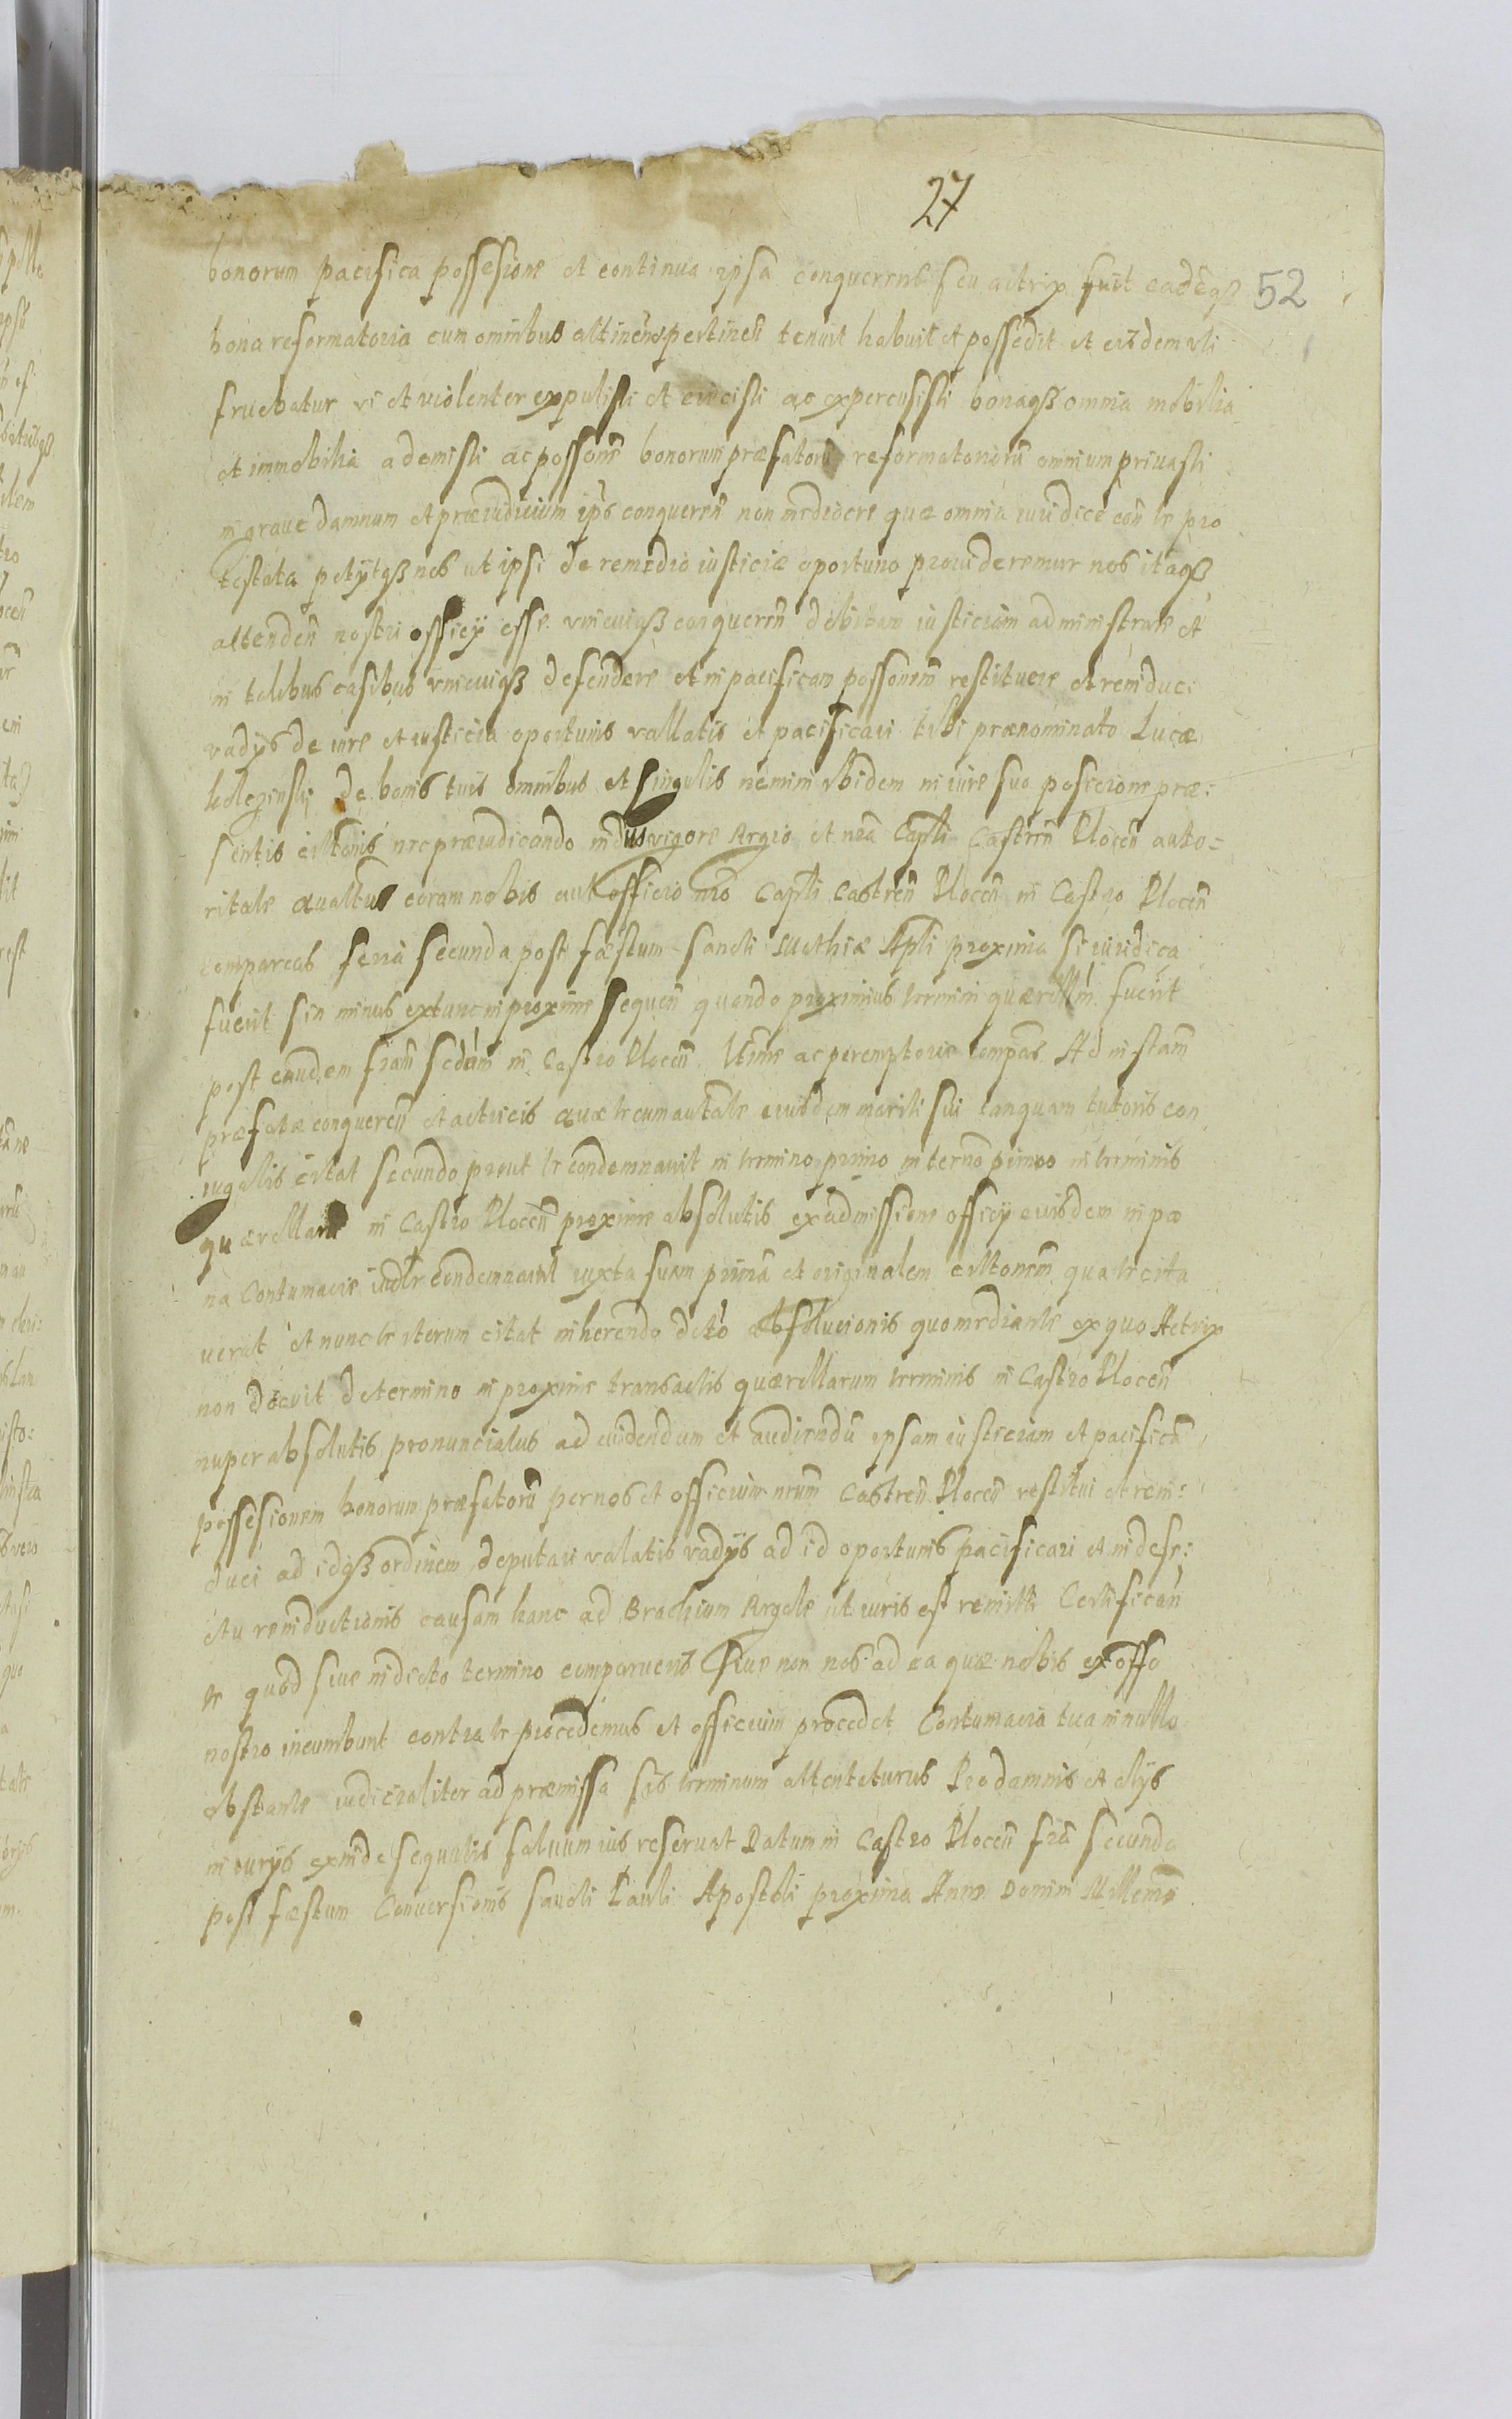 27
bonorum pacifica possesione et continua ipsa conqueren̄s seu actrix fuit eadēqȝ 52
bona reformatoria cum omnibus attinēn pertinēn tenuit habuit et possedit et eisdem uti
fruebatur vi et violenter expulisti et eiecisti ac expercusisti bonaqȝ omnia mobilia
et immobilia ademisti ac possonē bonorum præfatorū reformatoriorū omnium priuasti
in graue damnum et præiudicium ips conquerēn non mediocre quæ omnia iuridice con̄ te pro
testata petijtqȝ nos ut ipsi de remedio iusticiæ oportuno prouideremur nos itaqȝ
attendēn nostri officij esse vnicuiqȝ conquerēn debitam iusticiam administrare et
in talibus casibus vnicuiqȝ defendere et in pacificam possonēm restituere et reinduci
vadijs de iure et iusticia oportunis vallatis et pacificari tibi prænominato Lucæ
de bonis tuis omnibus et singulis nemini ibidem in iure suo posicione præ:
sentis citōnis nec præiudicando vigore Regio et nrā Capti Castrēn Plocēn auto=
ritate quatēus coram nobis aut officio nro Capti Castrēn Plocēn in Castro Plocēn
compareas feria secunda post fæstum sancti Mathiæ Apli proxima si iuridica
fuerit sin minus extunc in proxime sequēn quando proximius termini quærellarū fuerit
post eandem fiam scdām in Castro Plocēn Vtime ac peremptorie compās Ad instām
præfatæ conquerēn et actricis quæ te cum autate eiusdem mariti sui tanquam tutoris con
iugalis citat secundo prout te condemnauit in termino primo in terno primo in terminis
quærellarū in Castro Plocēn proxime absolutis ex admissione officij eiusdem in pœ
na Contumaciæ condemnauit iuxta suam primā et originalem citōnēm qua te cita
uerat et nunc te iterum citat inherendo decto absolucionis quo mediante ex quo Actrix
non docuit de termino in proxime transactis quærellarum terminis in Castro Plocēn
nuper absolutis pronunciatus ad uidendum et audiendū ipsam iusticiam et pacificā
possesionem bonorum præfatorū per nos et officium nrum Castrēn Plocēn restitui et rein:
duci ad idqȝ ordinem deputari valatis vadijs ad id oportunis pacificari et in defe:
ctu reinductionis causam hanc ad Brachium Regale ut iuris est remitti Certificān
te quod siue in dicto termino comparueris siue non nos ad ea quæ nobis ex offo
nostro incumbunt contra te procedemus et officium procedet Contumacia tua in nullo
obstante iudicialiter ad præmissa sis terminum attentaturus Pro damnis et alijs
iniurijs exinde sequutis saluum ius reseruat Datum in Castro Plocēn fiā secunda
post fæstum Conuersionis Sancti Pauli Apostoli proxima Anno Domini Millemo